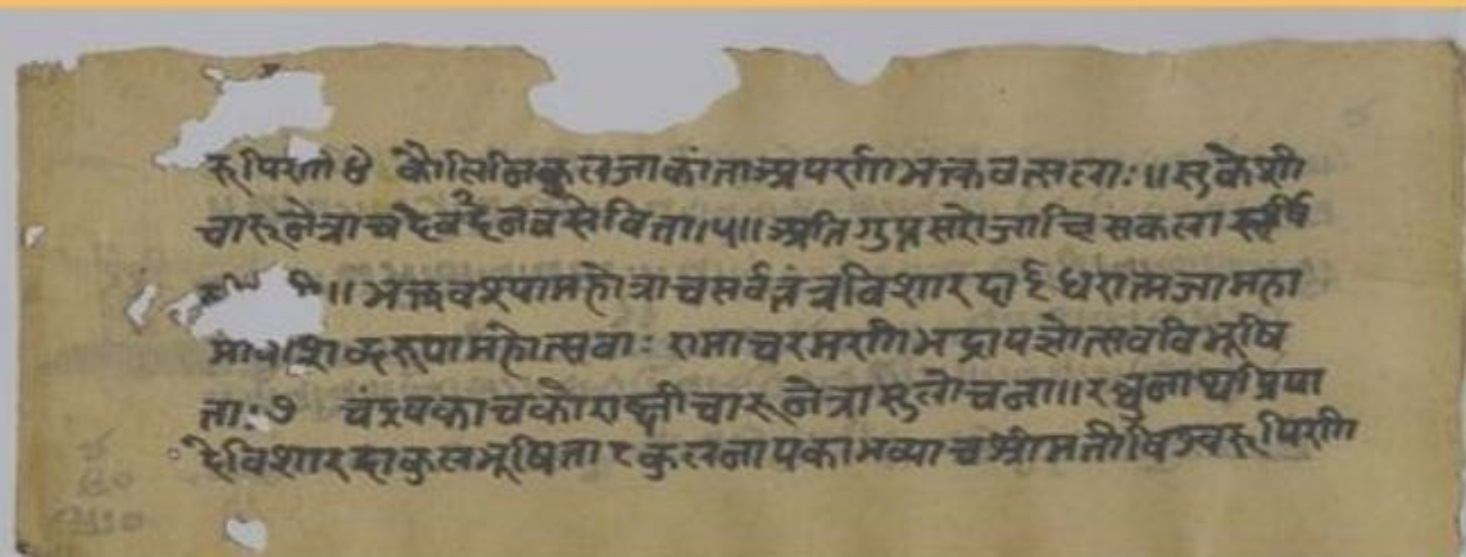 रूपिणी ४ कौलिनिकुलजाकांताअपर्णाभक्तवत्सलाः॥सुकेशी
चारुनेत्राचदेवदेनवसेविता॥५॥अतिगुप्तसरोजाक्षि सकला
॥भक्तवश्यामहोत्राचसर्वतंत्रविशारदा ६ धरात्मजामहा
रूपामहोत्सवाः रामाचरमणीभद्रायज्ञोत्सवविभूषि
ताः७ चंद्रपकाचकोराक्षीचारुनेत्रासुलोचना॥रघुनाथप्रिया
देविशारदाकुलभूषिता ८ कुलनायकाभव्याचश्रीमती